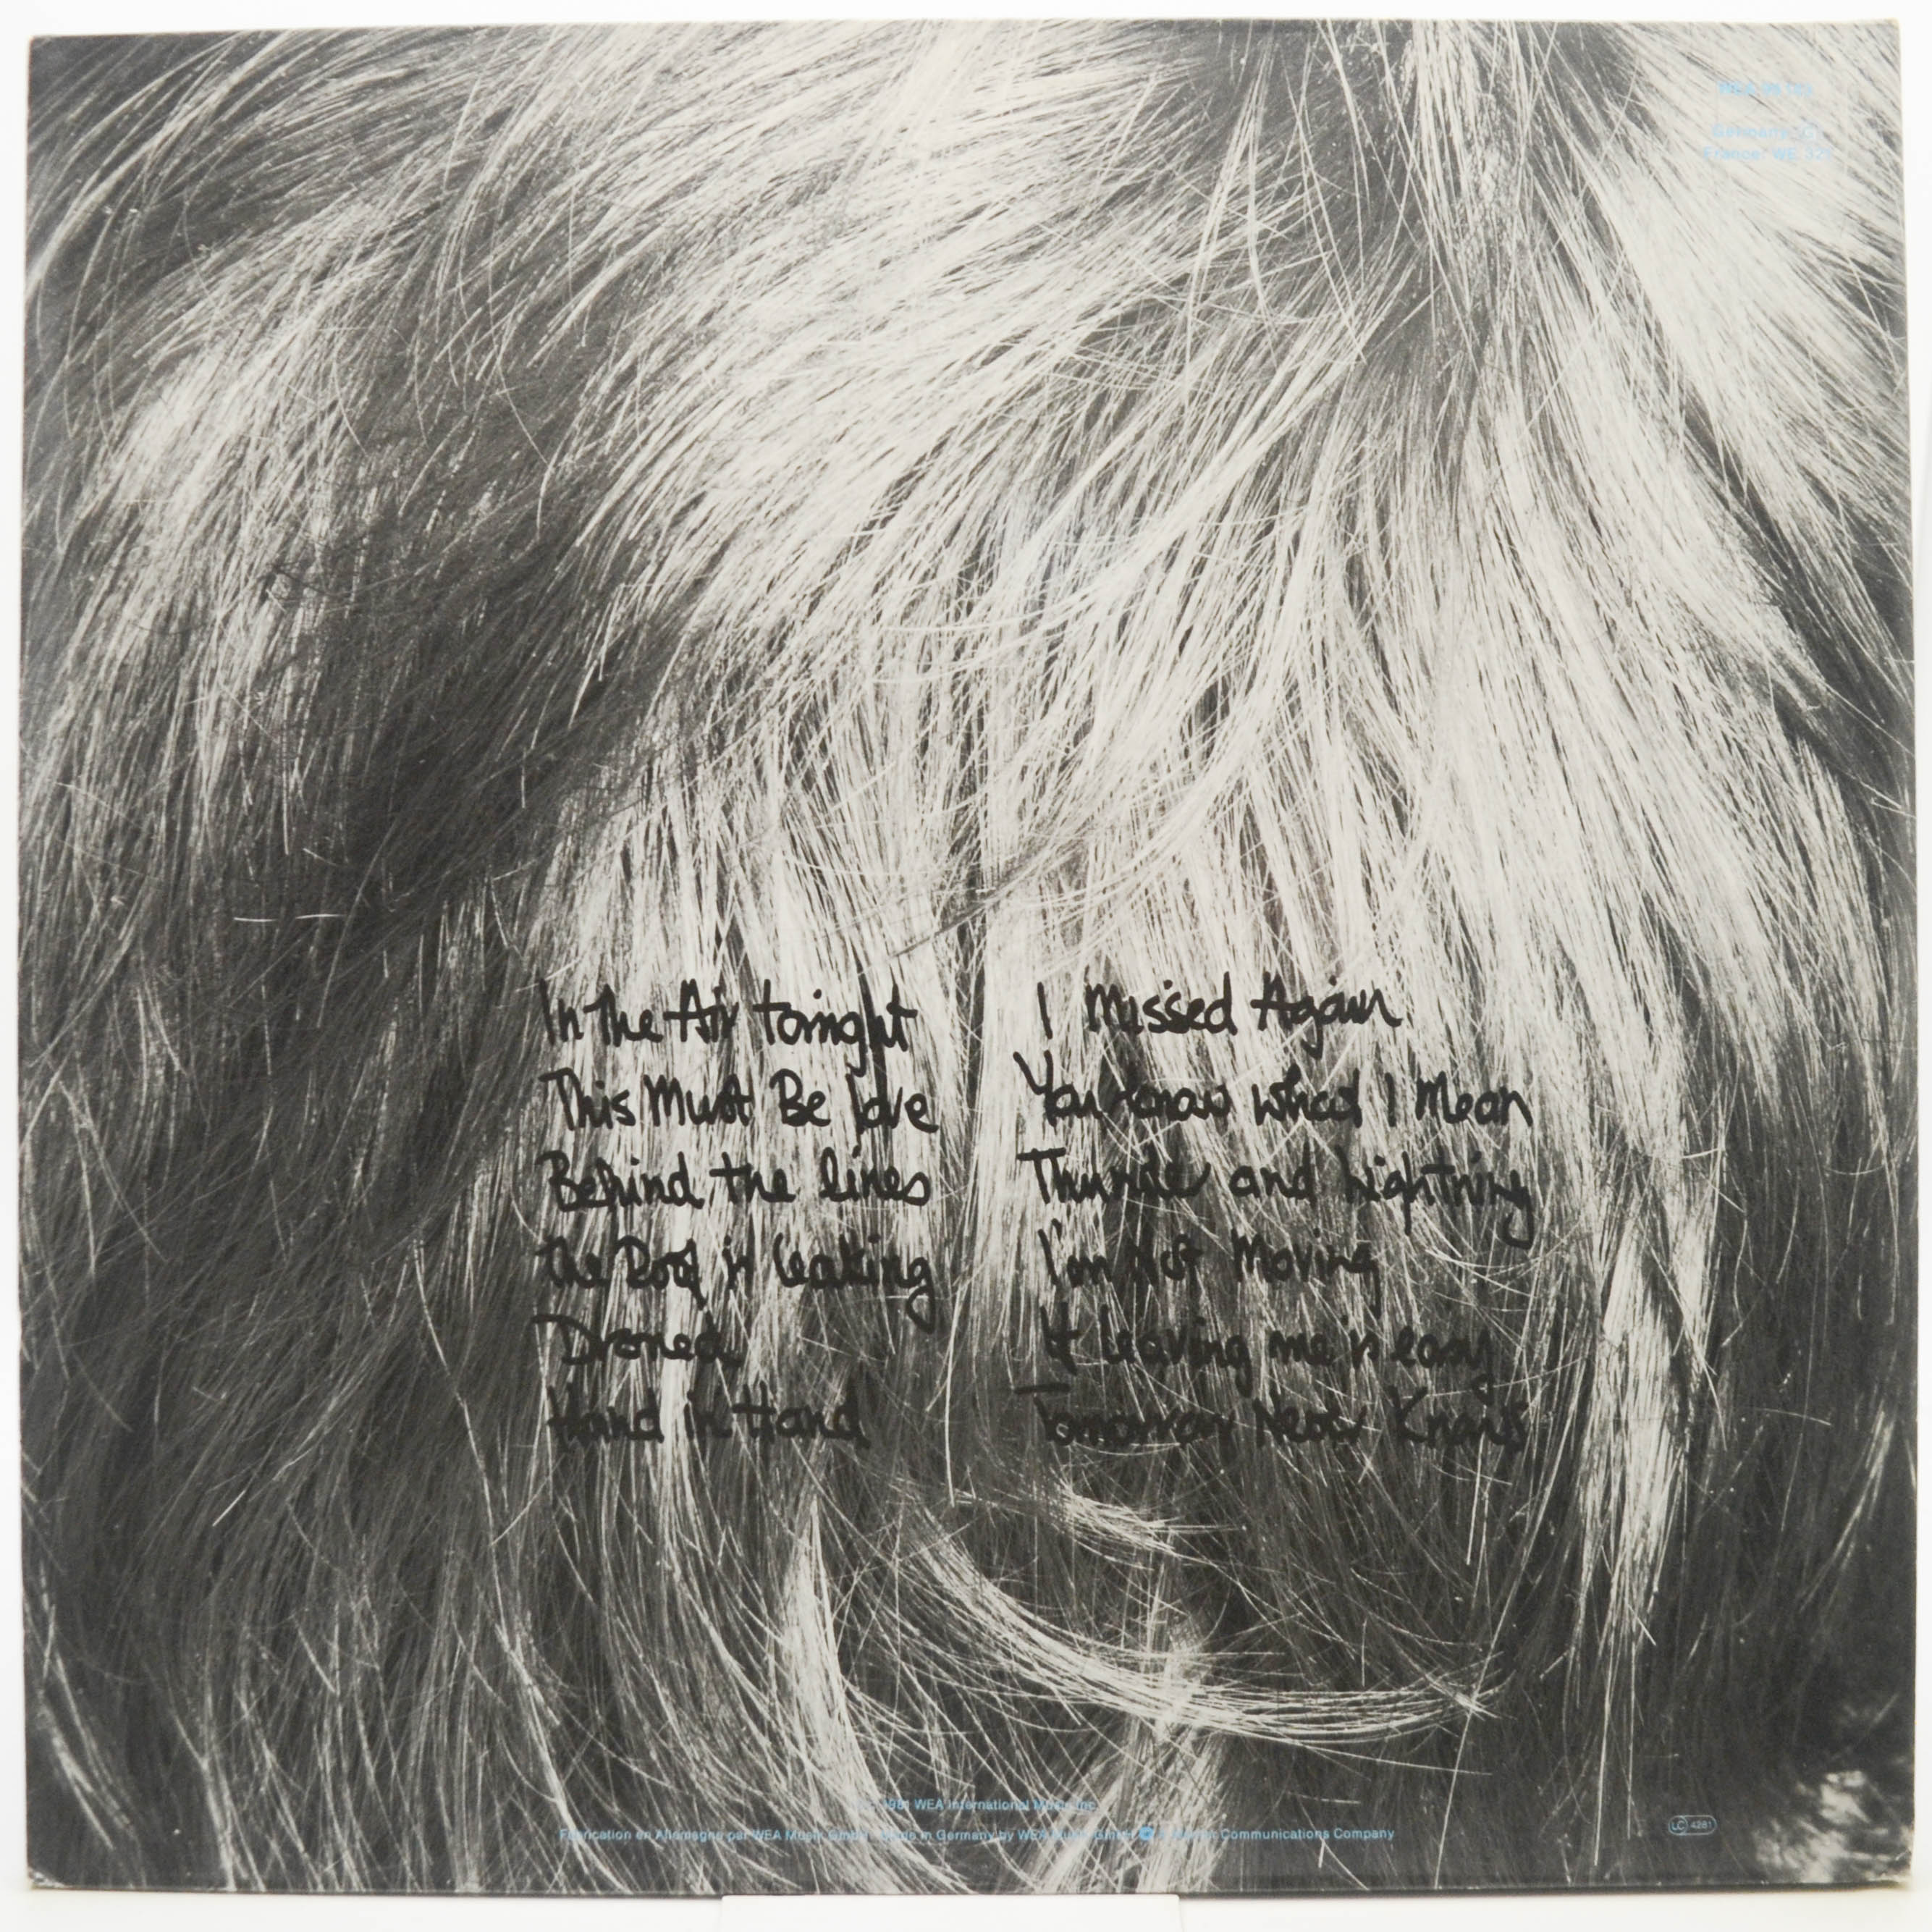 Germany: (C)
France: WE 321
In The Air tonight
This Must Be love
Behind the lines
the Roof is leaking
Droned
Hand in Hand
I Missed Again
You know what I Mean
Thunder and Lightning
I'm Not Moving
If leaving me is easy
Tomorrow Never Knows
1981 WEA International Music Inc.
Fabrication en Allemagne par WEA Music GmbH Made in Germany by WEA Music GmbH Communications Company
LC 4281